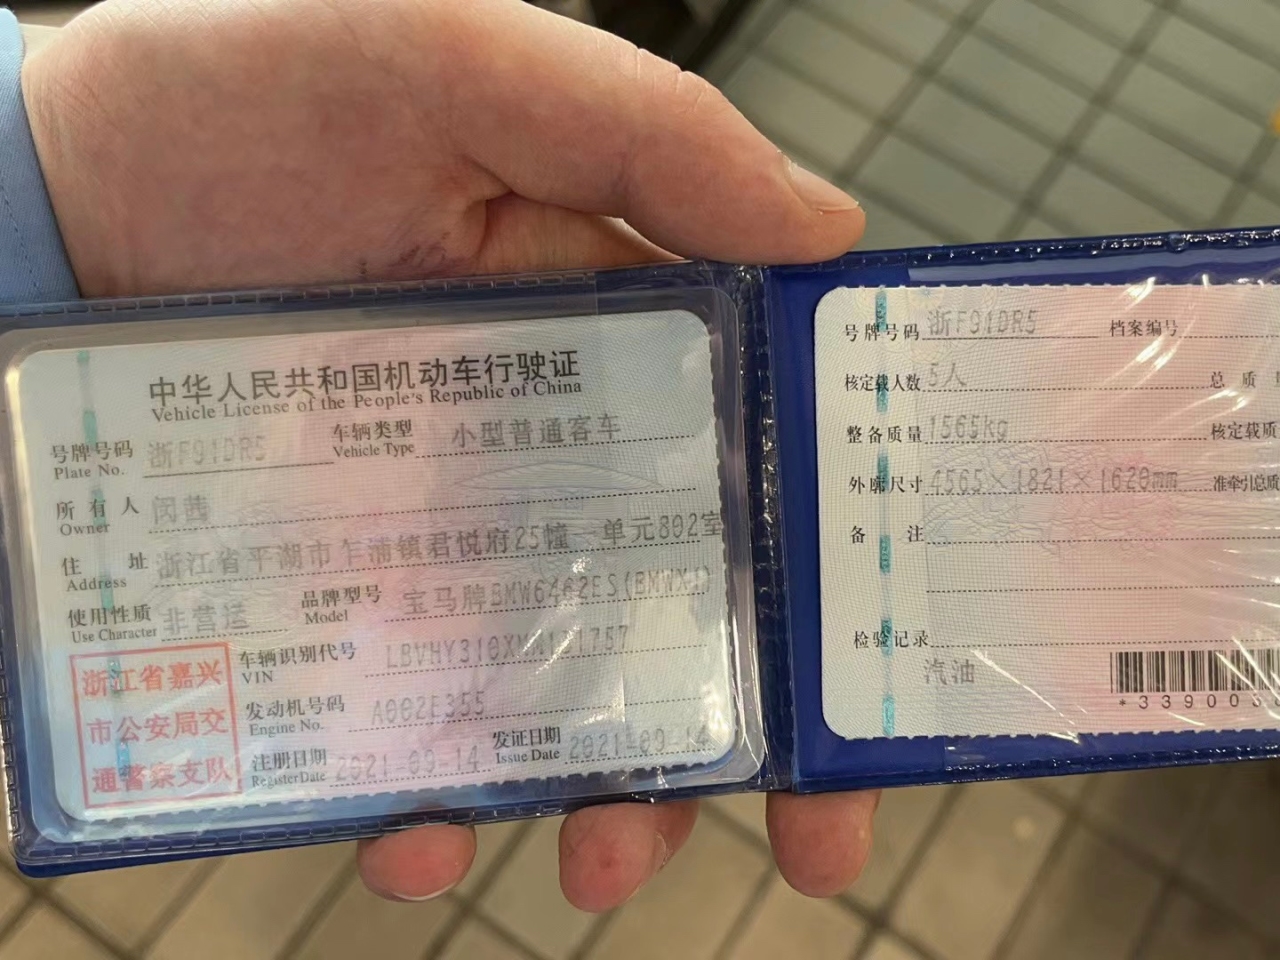 中华人民共和国机动车行驶证
Vehicle License of the People's Republic of China
号牌号码 浙F91DR5 车辆类型 小型普通客车
Plate No. Vehicle Type
所有人 闵茜
Owner
住址 浙江省平湖市乍浦镇君悦府25幢一单元802室
Address
使用性质 非营运 品牌型号 宝马牌BMW6462ES(BMWX1)
Use Character Model
浙江省嘉兴
市公安局交
通警察支队
车辆识别代号
VIN
发动机号码 A002E355
Engine No.
注册日期 2021-09-14 发证日期 2021-09-14
Register Date Issue Date
号牌号码 浙F91DR5 档案编号
核定载人数 5人 总质
整备质量 1565kg 核定载质
外廓尺寸 4565×1821×1620mm 准牵引总质
备注
检验记录
汽油
*33900